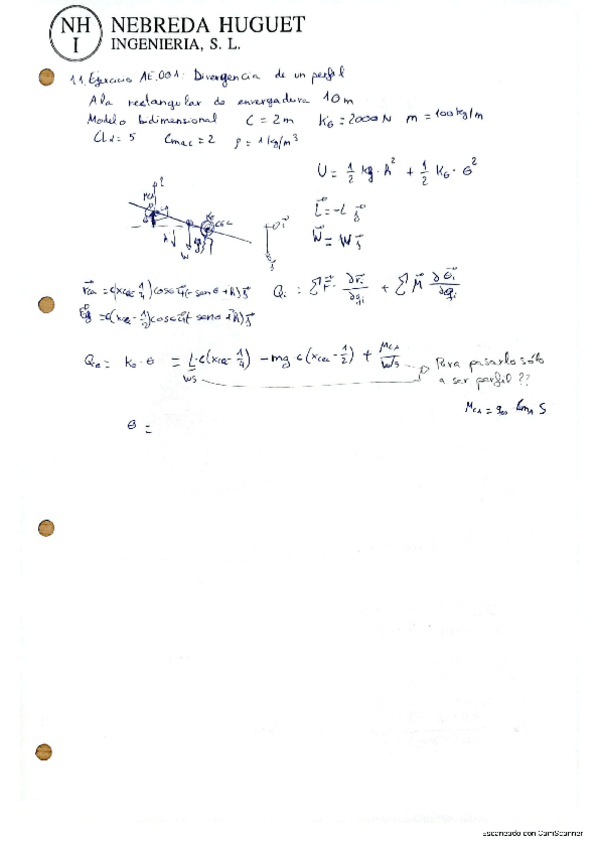 NH
I
NEBREDA HUGUET
INGENIERIA, S. L.
1.1. Ejercicio AE.001: Divergencia de un perfil
Ala rectangular de envergadura 10m
Modelo bidimensional C = 2m Kθ = 2000 N m = 100 kg/m
Clα = 5 Cmac = 2 ρ = 1 kg/m³
U = 1/2 kg · h² + 1/2 Kθ · θ²
L⃗ = -L j⃗
W⃗ = W j⃗
Qi: ΣF⃗ · ∂r⃗i/∂qi + ΣM⃗ ∂θ⃗i/∂qi
Qθ = kθ · θ = L · c(xce - 1/4) - mg c(xce - 1/2) + MCA/WS
WS
Para pasarlo sólo
a ser perfil ??
MCA = q∞ CmA S
θ =
Escaneado con CamScanner